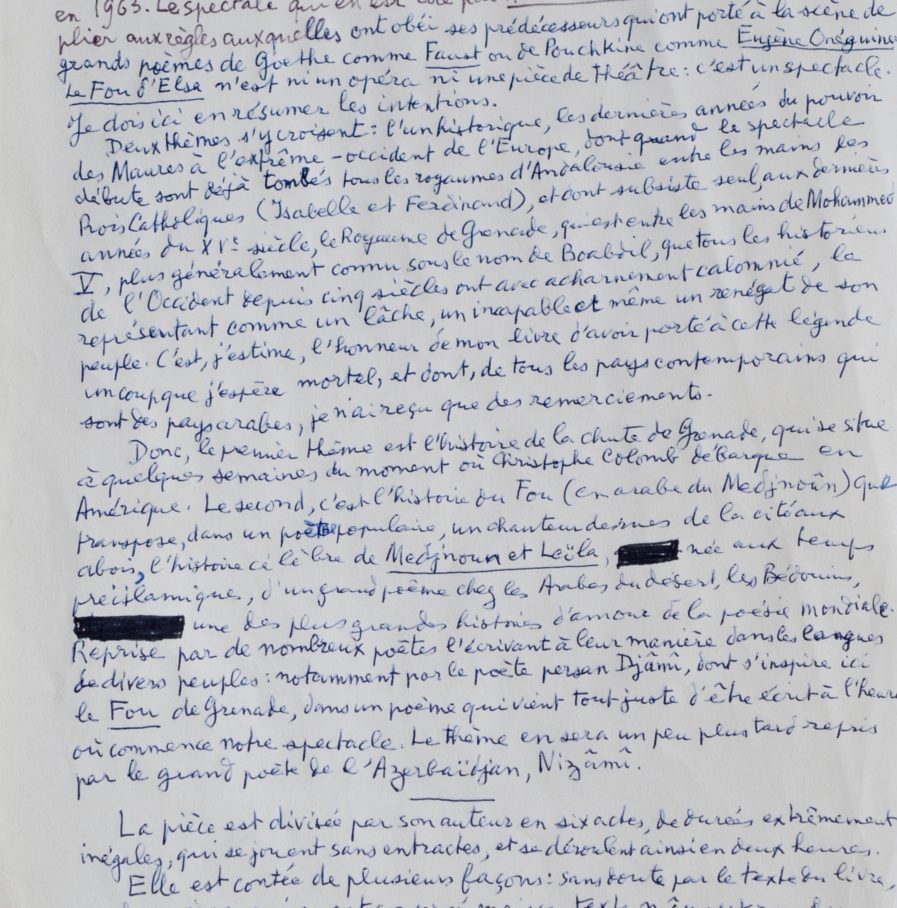 en 1963. Le spectacle qui en est
plier aux règles auxquelles ont obéi ses prédécesseurs qui ont porté à la scène de
grands poèmes de Goethe comme Faust ou de Pouchkine comme Eugène Onéguine
Le Fou d'Elsa n'est ni un opéra ni une pièce de théâtre : c'est un spectacle.
Je dois ici en résumer les intentions.
Deux thèmes s'y croisent : l'un historique, les dernières années du pouvoir
des Maures à l'extrême-occident de l'Europe, dont quand le spectacle
débute sont déjà tombés tous les royaumes d'Andalousie entre les mains des
Rois Catholiques (Isabelle et Ferdinand), et dont subsiste seul, aux dernières
années du XVe siècle, le Royaume de Grenade, qui est entre les mains de Mohammed
V, plus généralement connu sous le nom de Boabdil, que tous les historiens
de l'Occident depuis cinq siècles ont avec acharnement calomnié, le
représentant comme un lâche, un incapable et même un renégat de son
peuple. C'est, j'estime, l'honneur de mon livre d'avoir porté à cette légende
un coup que j'espère mortel, et dont, de tous les pays contemporains qui
sont des pays arabes, je n'ai reçu que des remerciements.
Donc, le premier thème est l'histoire de la chute de Grenade, qui se situe
à quelques semaines du moment où Christophe Colomb débarque en
Amérique. Le second, c'est l'histoire du Fou (en arabe du Medjnoûn) que
transpose, dans un poète populaire, un chanteur des rues de la cité aux
abois, l'histoire célèbre de Medjnoun et Leïla, née aux temps
préislamiques, d'un grand poème chez les Arabes du désert, les Bédouins,
une des plus grandes histoires d'amour de la poésie mondiale.
Reprise par de nombreux poètes l'écrivant à leur manière dans les langues
de divers peuples : notamment par le poète persan Djâmi, dont s'inspire ici
le Fou de Grenade, dans un poème qui vient tout juste d'être écrit à l'heure
où commence notre spectacle. Le thème en sera un peu plus tard repris
par le grand poète de l'Azerbaïdjan, Nizâmî.
La pièce est divisée par son auteur en six actes, de durées extrêmement
inégales, qui se jouent sans entractes, et se déroulent ainsi en deux heures.
Elle est contée de plusieurs façons : sans doute par le texte du livre,